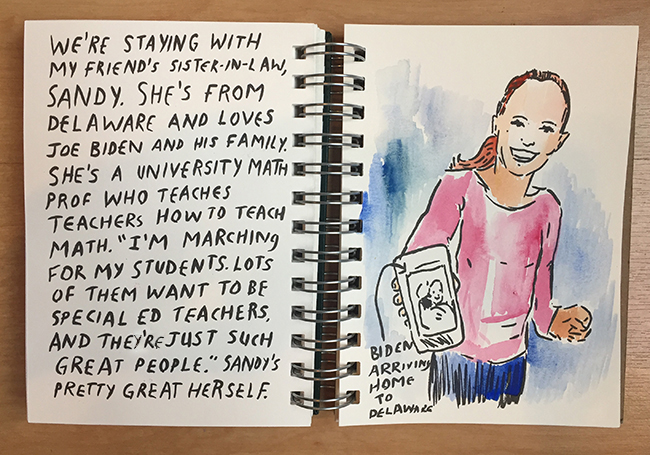 WE'RE STAYING WITH
MY FRIEND'S SISTER-IN-LAW,
SANDY. SHE'S FROM
DELAWARE AND LOVES
JOE BIDEN AND HIS FAMILY.
SHE'S A UNIVERSITY MATH
PROF WHO TEACHES
TEACHERS HOW TO TEACH
MATH. "I'M MARCHING
FOR MY STUDENTS. LOTS
OF THEM WANT TO BE
SPECIAL ED TEACHERS,
AND THEY'RE JUST SUCH
GREAT PEOPLE." SANDY'S
PRETTY GREAT HERSELF.
BIDEN
ARRIVING
HOME
TO
DELAWARE